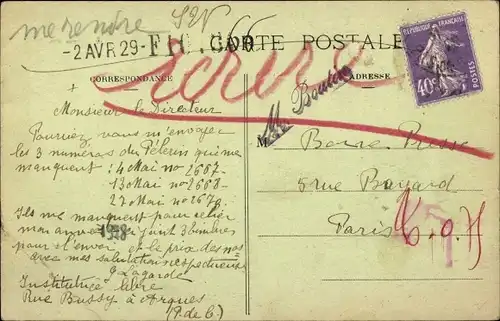 me rendre
S2N
-2 AVR 29
CARTE POSTALE
RÉPUBLIQUE FRANÇAISE
40c
POSTES
CORRESPONDANCE
ADRESSE
Monsieur le Directeur
Pourriez vous m'envoyer
les 3 numéros du Pélerin qui me
manquent : 4 Mai no 2667
13 Mai no 2668
27 Mai no 2670
Ils me manquent pour relier
mon année 1928 joint 3 timbres
pour l'envoi et le prix des nos
avec mes salutations respectueuses
G Lagarde
Institutrice libre
Rue Bussy à Arques
(P. de C.)
M
Bonne Presse
5 rue Bayard
Paris